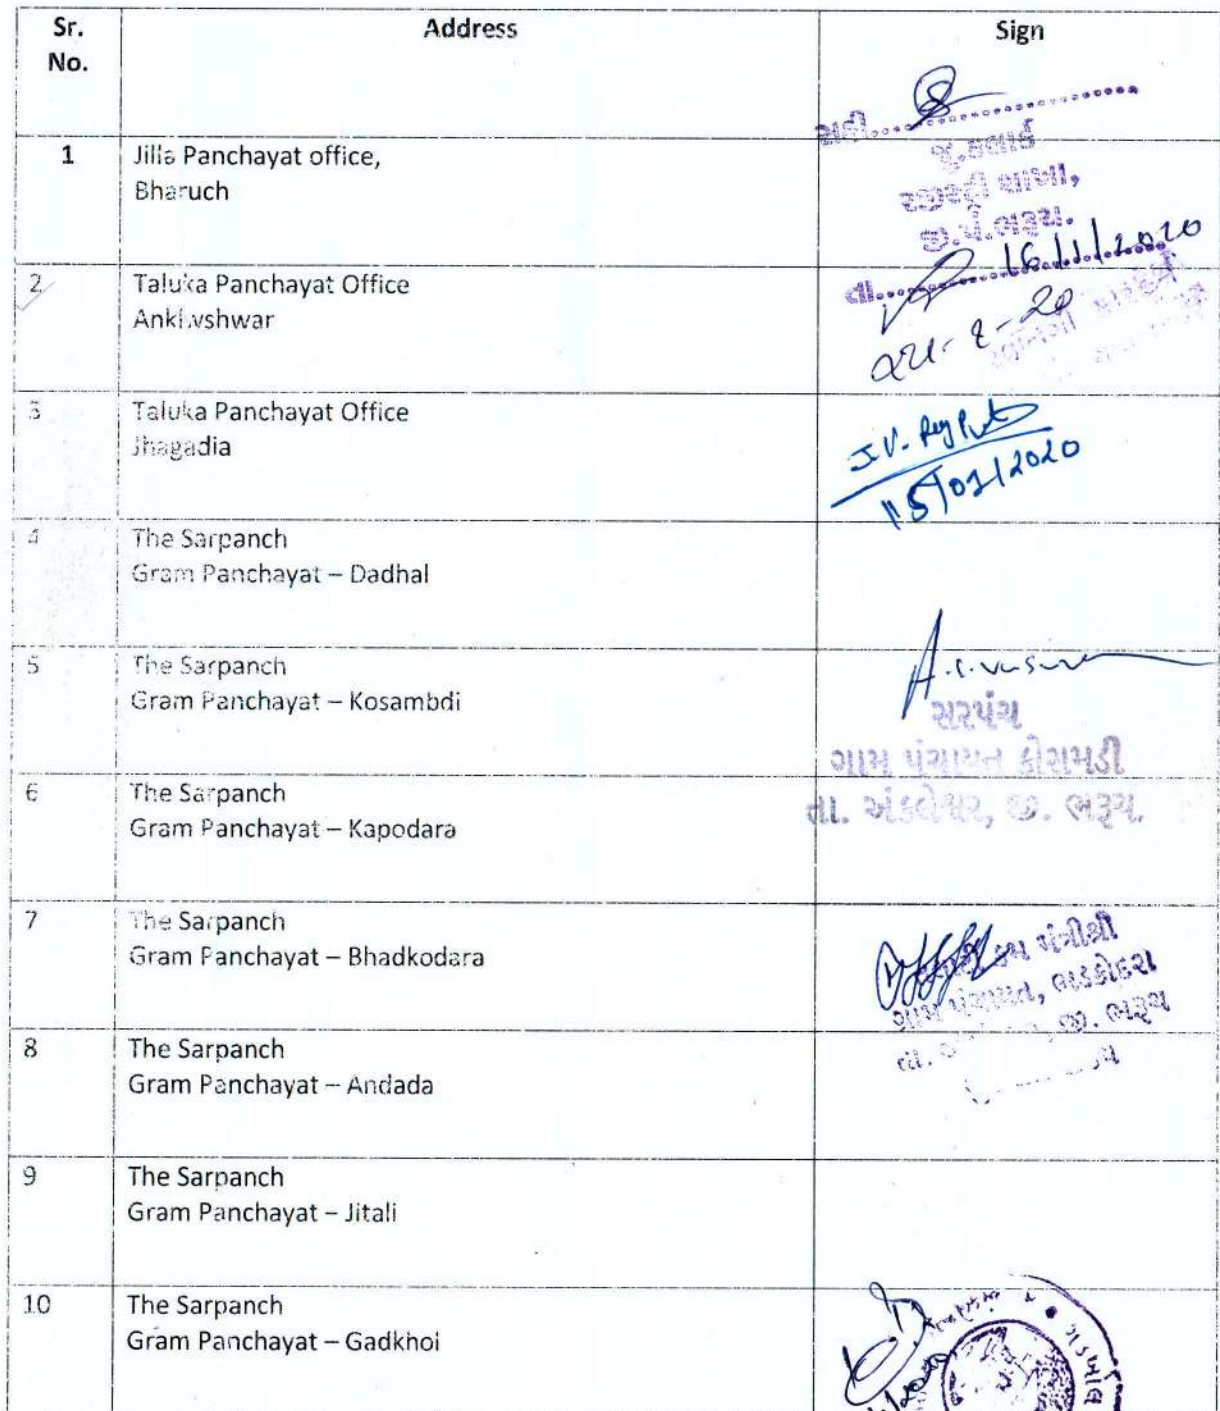 Sr. No.
Address
Sign
સહી
જુ.કલાર્ક
રજીસ્ટ્રી શાખા,
જી.પં.ભરૂચ.
તા. 16/1/2020
1
Jilla Panchayat office,
Bharuch
2
Taluka Panchayat Office
3
Taluka Panchayat Office
Jhagadia
J.V.
15/01/2020
4
The Sarpanch
Gram Panchayat – Dadhal
5
The Sarpanch
Gram Panchayat – Kosambdi
સરપંચ
ગામ પંચાયત કોસમડી
તા. અંકલેશ્વર, જી. ભરૂચ.
6
The Sarpanch
Gram Panchayat – Kapodara
7
The Sarpanch
Gram Panchayat – Bhadkodara
મંત્રીશ્રી
ગામ પંચાયત, ભડકોદરા
જી. ભરૂચ
8
The Sarpanch
Gram Panchayat – Andada
9
The Sarpanch
Gram Panchayat – Jitali
10
The Sarpanch
Gram Panchayat – Gadkhol
ગડખોલ